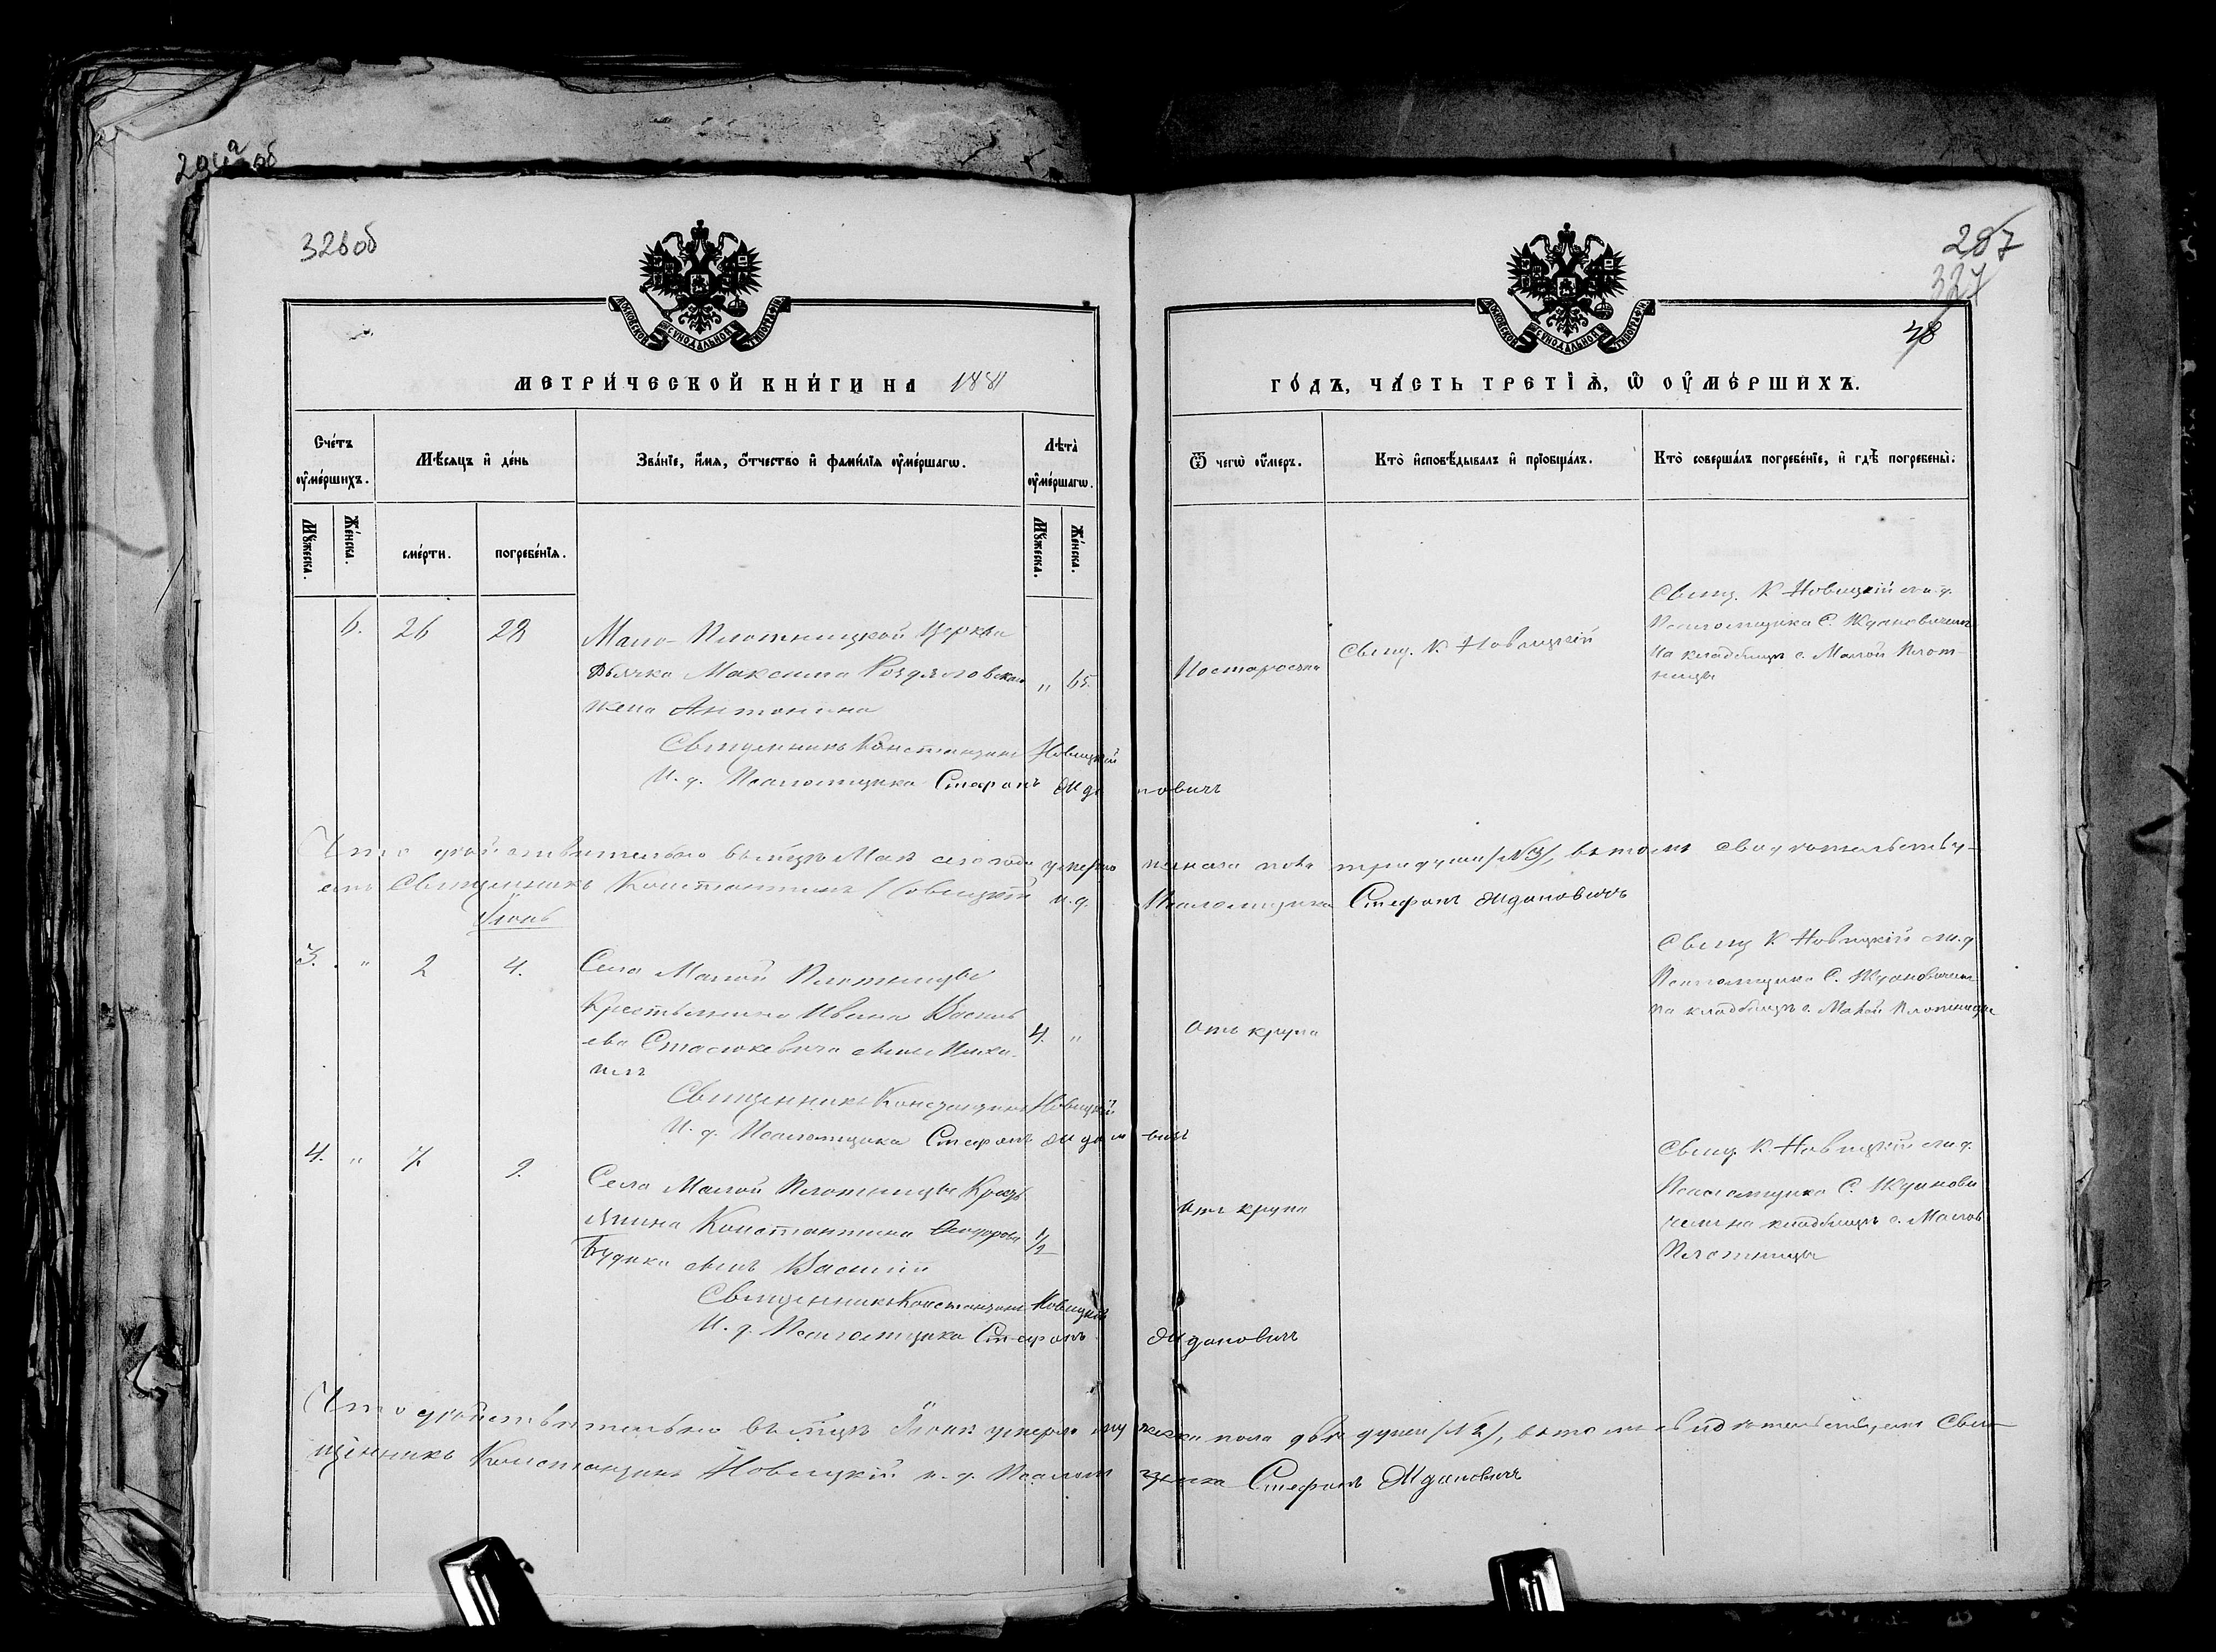 326об
287
327
48
МОСКОВСКОЙ СѴНОДАЛЬНОЙ ТИПОГРАФІИ
МОСКОВСКОЙ СѴНОДАЛЬНОЙ ТИПОГРАФІИ
МЕТРИ́ЧЕСКОЙ КНИ́ГИ НА 1881
ГО́ДЪ, ЧА́СТЬ ТРЕТІ́Ѧ, Ѡ ОУ҆МЕ́РШИХЪ.
Сче́тъ оу҆ме́ршихъ.
Мѣ́сѧцъ и҆ де́нь
Зва́нїе, и҆́мѧ, ѻ҆́тчество и҆ фами́лїѧ оу҆ме́ршагѡ.
Лѣ́та оу҆ме́ршагѡ.
Ѿ чегѡ̀ оу҆́меръ.
Кто̀ и҆сповѣ́дывалъ и҆ прїѡбща́лъ.
Кто̀ соверша́лъ погребе́нїе, и҆ гдѣ̀ погребены̀.
Мꙋ́жеска.
Же́нска.
сме́рти.
погребе́нїѧ.
Мꙋ́жеска.
Же́нска.
6. 26 28
Мало-Плотницкой Церкви
Дьячка Максима
жена Антонина
" 65.
Свящ. К. Новицкій
Свящ. К. Новицкій с и. д.
Псаломщика С. Ждановичемъ
на кладбищѣ с. Малой Плот-
ницы
Священникъ Константинъ Новицкій
И. д. Псаломщика Стефанъ Ждановичъ
Что действительно въ м-цѣ Маѣ сего года умерло женска пола три души /№3/, въ томъ свидетельству-
етъ Священникъ Константинъ Новицкій и. д. Псаломщика Стефанъ Ждановичъ
Іюнь
3. " 2 4.
Села Малой Плотницы
Крестьянина Ивана Василь
ева Стасюкевича сынъ Миха-
илъ
4. "
Отъ крупа
Свящ К. Новицкій с и. д
Псаломщика С. Ждановичемъ
на кладбищѣ с. Малой Плотницы
Священникъ Константинъ Новицкій
И. д. Псаломщика Стефанъ Ждановичъ
4. " 7. 9.
Села Малой Плотницы Кресть
янина Константина Ѳеодорова
Будика сынъ Василій
1/2
Отъ крупа
Свящ. К. Новицкій с и. д.
Псаломщика С. Жданови
чемъ на кладбищѣ с. Малой
Плотницы
Священникъ Константинъ Новицкій
И. д. Псаломщика Стефанъ Ждановичъ
Что действительно въ м-цѣ Іюнѣ умерло мужеска пола двѣ души /№2/, въ томъ свидѣтельствуетъ Свя-
щенникъ Константинъ Новицкій и. д. Псаломщика Стефанъ Ждановичъ